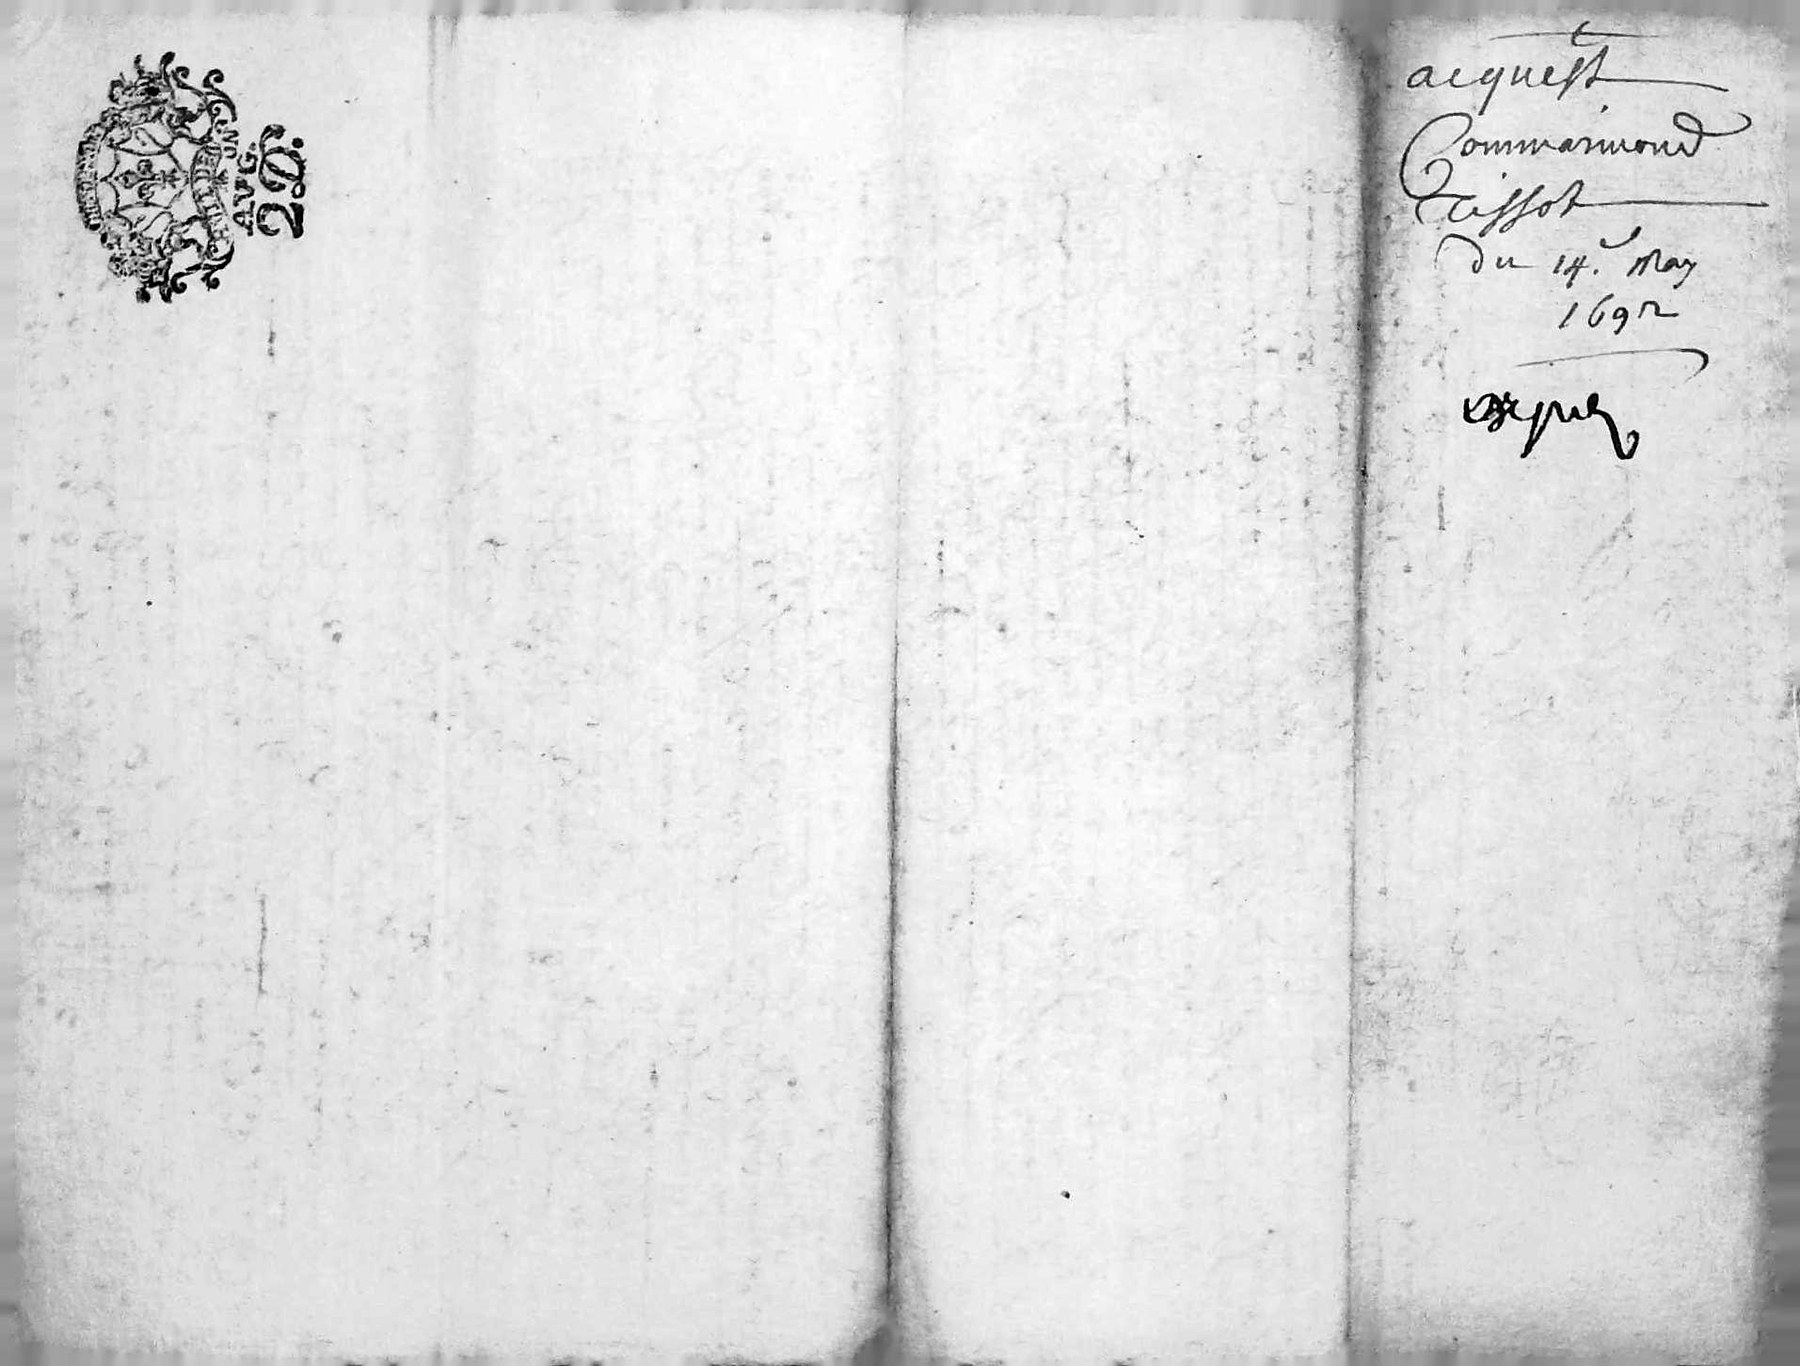 AVG.
2. D.
acquest
Commarmond
Tissot
du 14.e May
1692